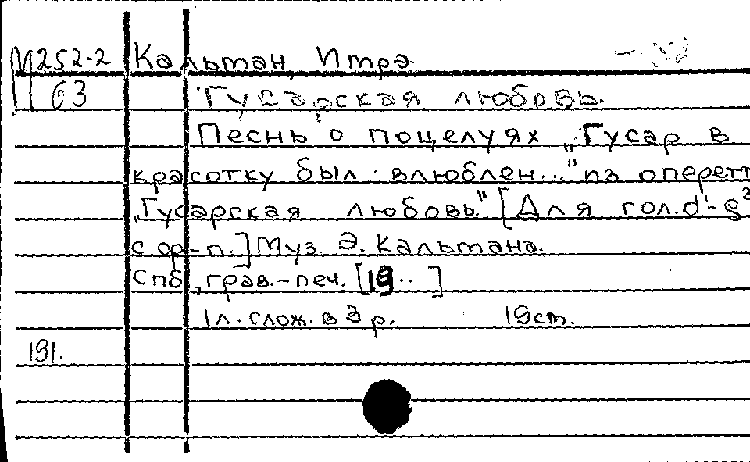 М252-2 Кальман, Имрэ
63 Гусарская любовь.
Песнь о поцелуях „Гусар в
красотку был влюблен..." из оперетт
„Гусарская любовь" [Для гол. d¹-g²
с ор-п.] Муз. Э. Кальмана.
Спб, грав.-печ. [19..]
1л. слож. в 3 р. 19ст.
191.